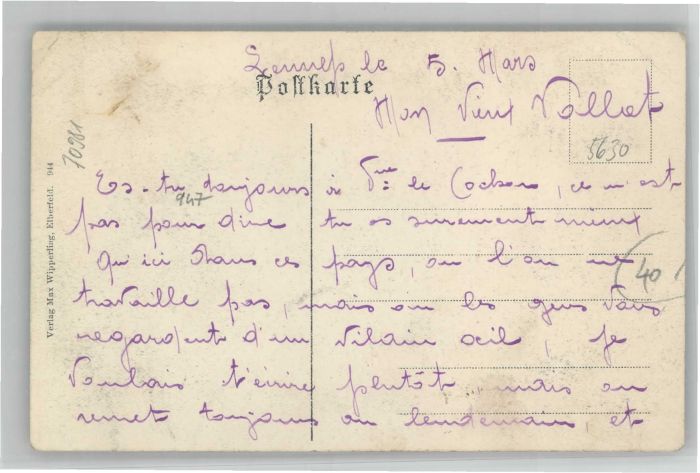 Lennep le 5. Mars
Postkarte
Mon Vieux Vallet
5630
70981
Es-tu toujours à le ce n'est
947
pas pour dire tu es surement mieux
Qu'ici dans ces pays, ou l'on ne
40
travaille pas, mais ou les gens vous
regardent d'un vilain œil, je
Voulais t'écrire plutôt, mais on
remet toujours au lendemain, et
Verlag Max Wipperling, Elberfeld. 944